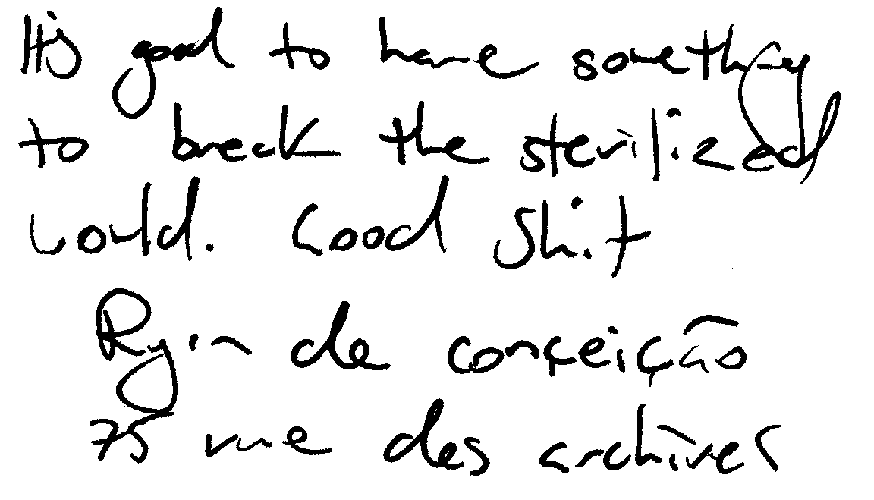 It's good to have something
to break the sterilized
world. Good shit
Ryin de conceição
75 rue des archives